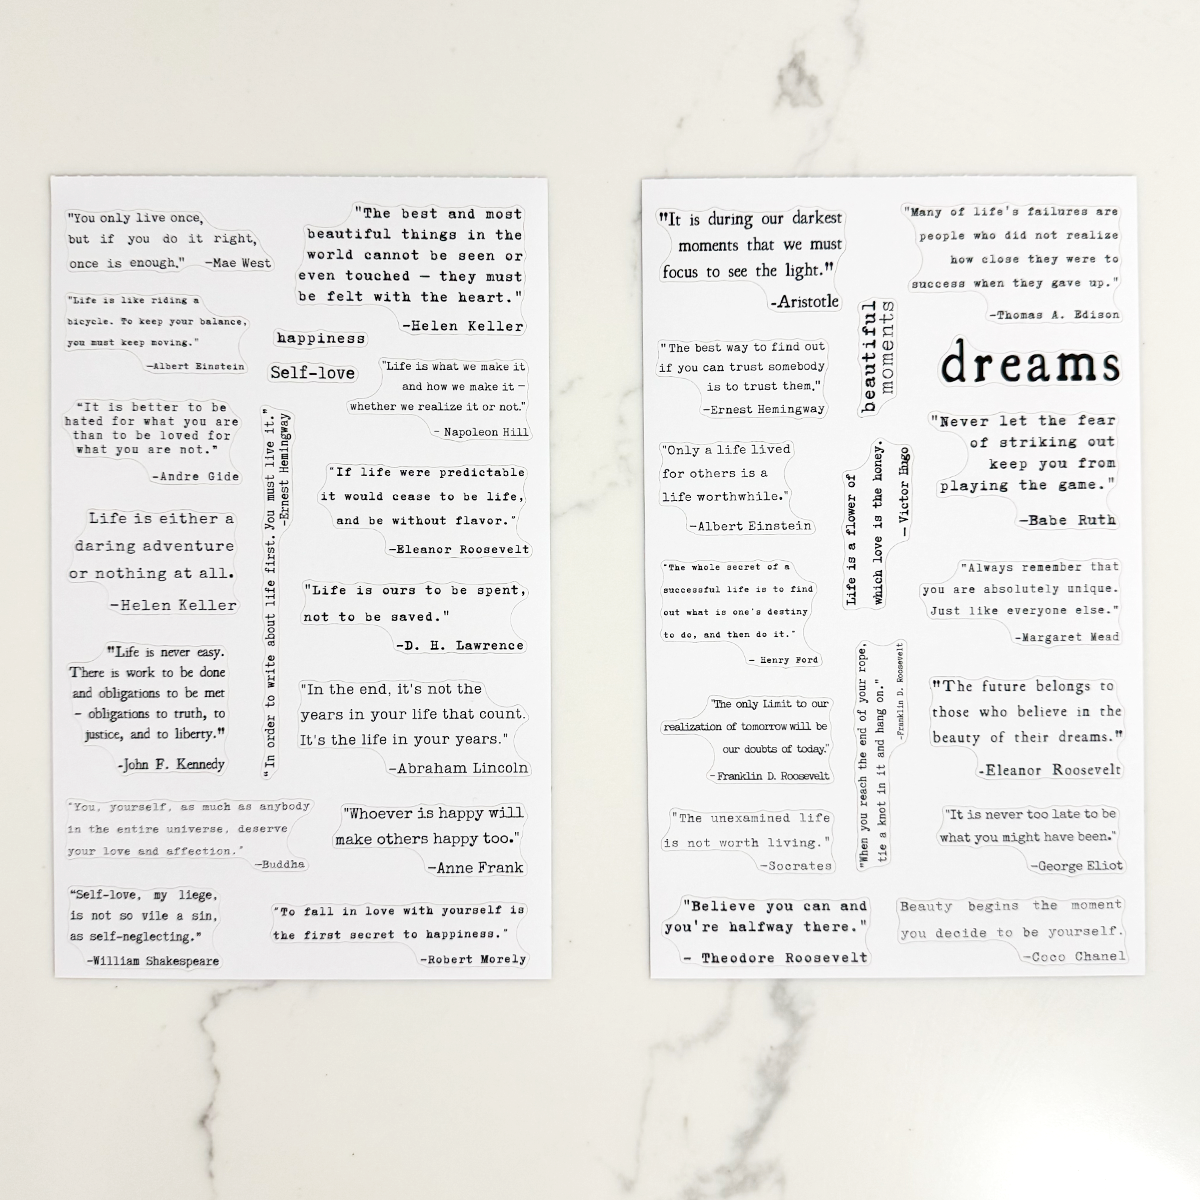 "You only live once,
but if you do it right,
once is enough." —Mae West
"Life is like riding a
bicycle. To keep your balance,
you must keep moving."
—Albert Einstein
"It is better to be
hated for what you are
than to be loved for
what you are not."
—Andre Gide
Life is either a
daring adventure
or nothing at all.
—Helen Keller
"Life is never easy.
There is work to be done
and obligations to be met
– obligations to truth, to
justice, and to liberty."
-John F. Kennedy
"You, yourself, as much as anybody
in the entire universe, deserve
your love and affection."
—Buddha
"Self-love, my liege,
is not so vile a sin,
as self-neglecting."
—William Shakespeare
"The best and most
beautiful things in the
world cannot be seen or
even touched — they must
be felt with the heart."
—Helen Keller
happiness
Self-love
"Life is what we make it
and how we make it —
whether we realize it or not."
- Napoleon Hill
"In order to write about life first. You must live it."
-Ernest Hemingway
"If life were predictable
it would cease to be life,
and be without flavor."
—Eleanor Roosevelt
"Life is ours to be spent,
not to be saved."
—D. H. Lawrence
"In the end, it's not the
years in your life that count.
It's the life in your years."
—Abraham Lincoln
"Whoever is happy will
make others happy too."
—Anne Frank
"To fall in love with yourself is
the first secret to happiness."
—Robert Morely
"It is during our darkest
moments that we must
focus to see the light."
-Aristotle
"The best way to find out
if you can trust somebody
is to trust them."
—Ernest Hemingway
"Only a life lived
for others is a
life worthwhile."
—Albert Einstein
"The whole secret of a
successful life is to find
out what is one's destiny
to do, and then do it."
— Henry Ford
"The only Limit to our
realization of tomorrow will be
our doubts of today."
- Franklin D. Roosevelt
"The unexamined life
is not worth living."
—Socrates
"Believe you can and
you're halfway there."
— Theodore Roosevelt
beautiful
moments
Life is a flower of
which love is the honey.
— Victor Hugo
"When you reach the end of your rope,
tie a knot in it and hang on."
-Franklin D. Roosevelt
"Many of life's failures are
people who did not realize
how close they were to
success when they gave up."
—Thomas A. Edison
dreams
"Never let the fear
of striking out
keep you from
playing the game."
—Babe Ruth
"Always remember that
you are absolutely unique.
Just like everyone else."
—Margaret Mead
"The future belongs to
those who believe in the
beauty of their dreams."
-Eleanor Roosevelt
"It is never too late to be
what you might have been."
—George Eliot
Beauty begins the moment
you decide to be yourself.
—Coco Chanel